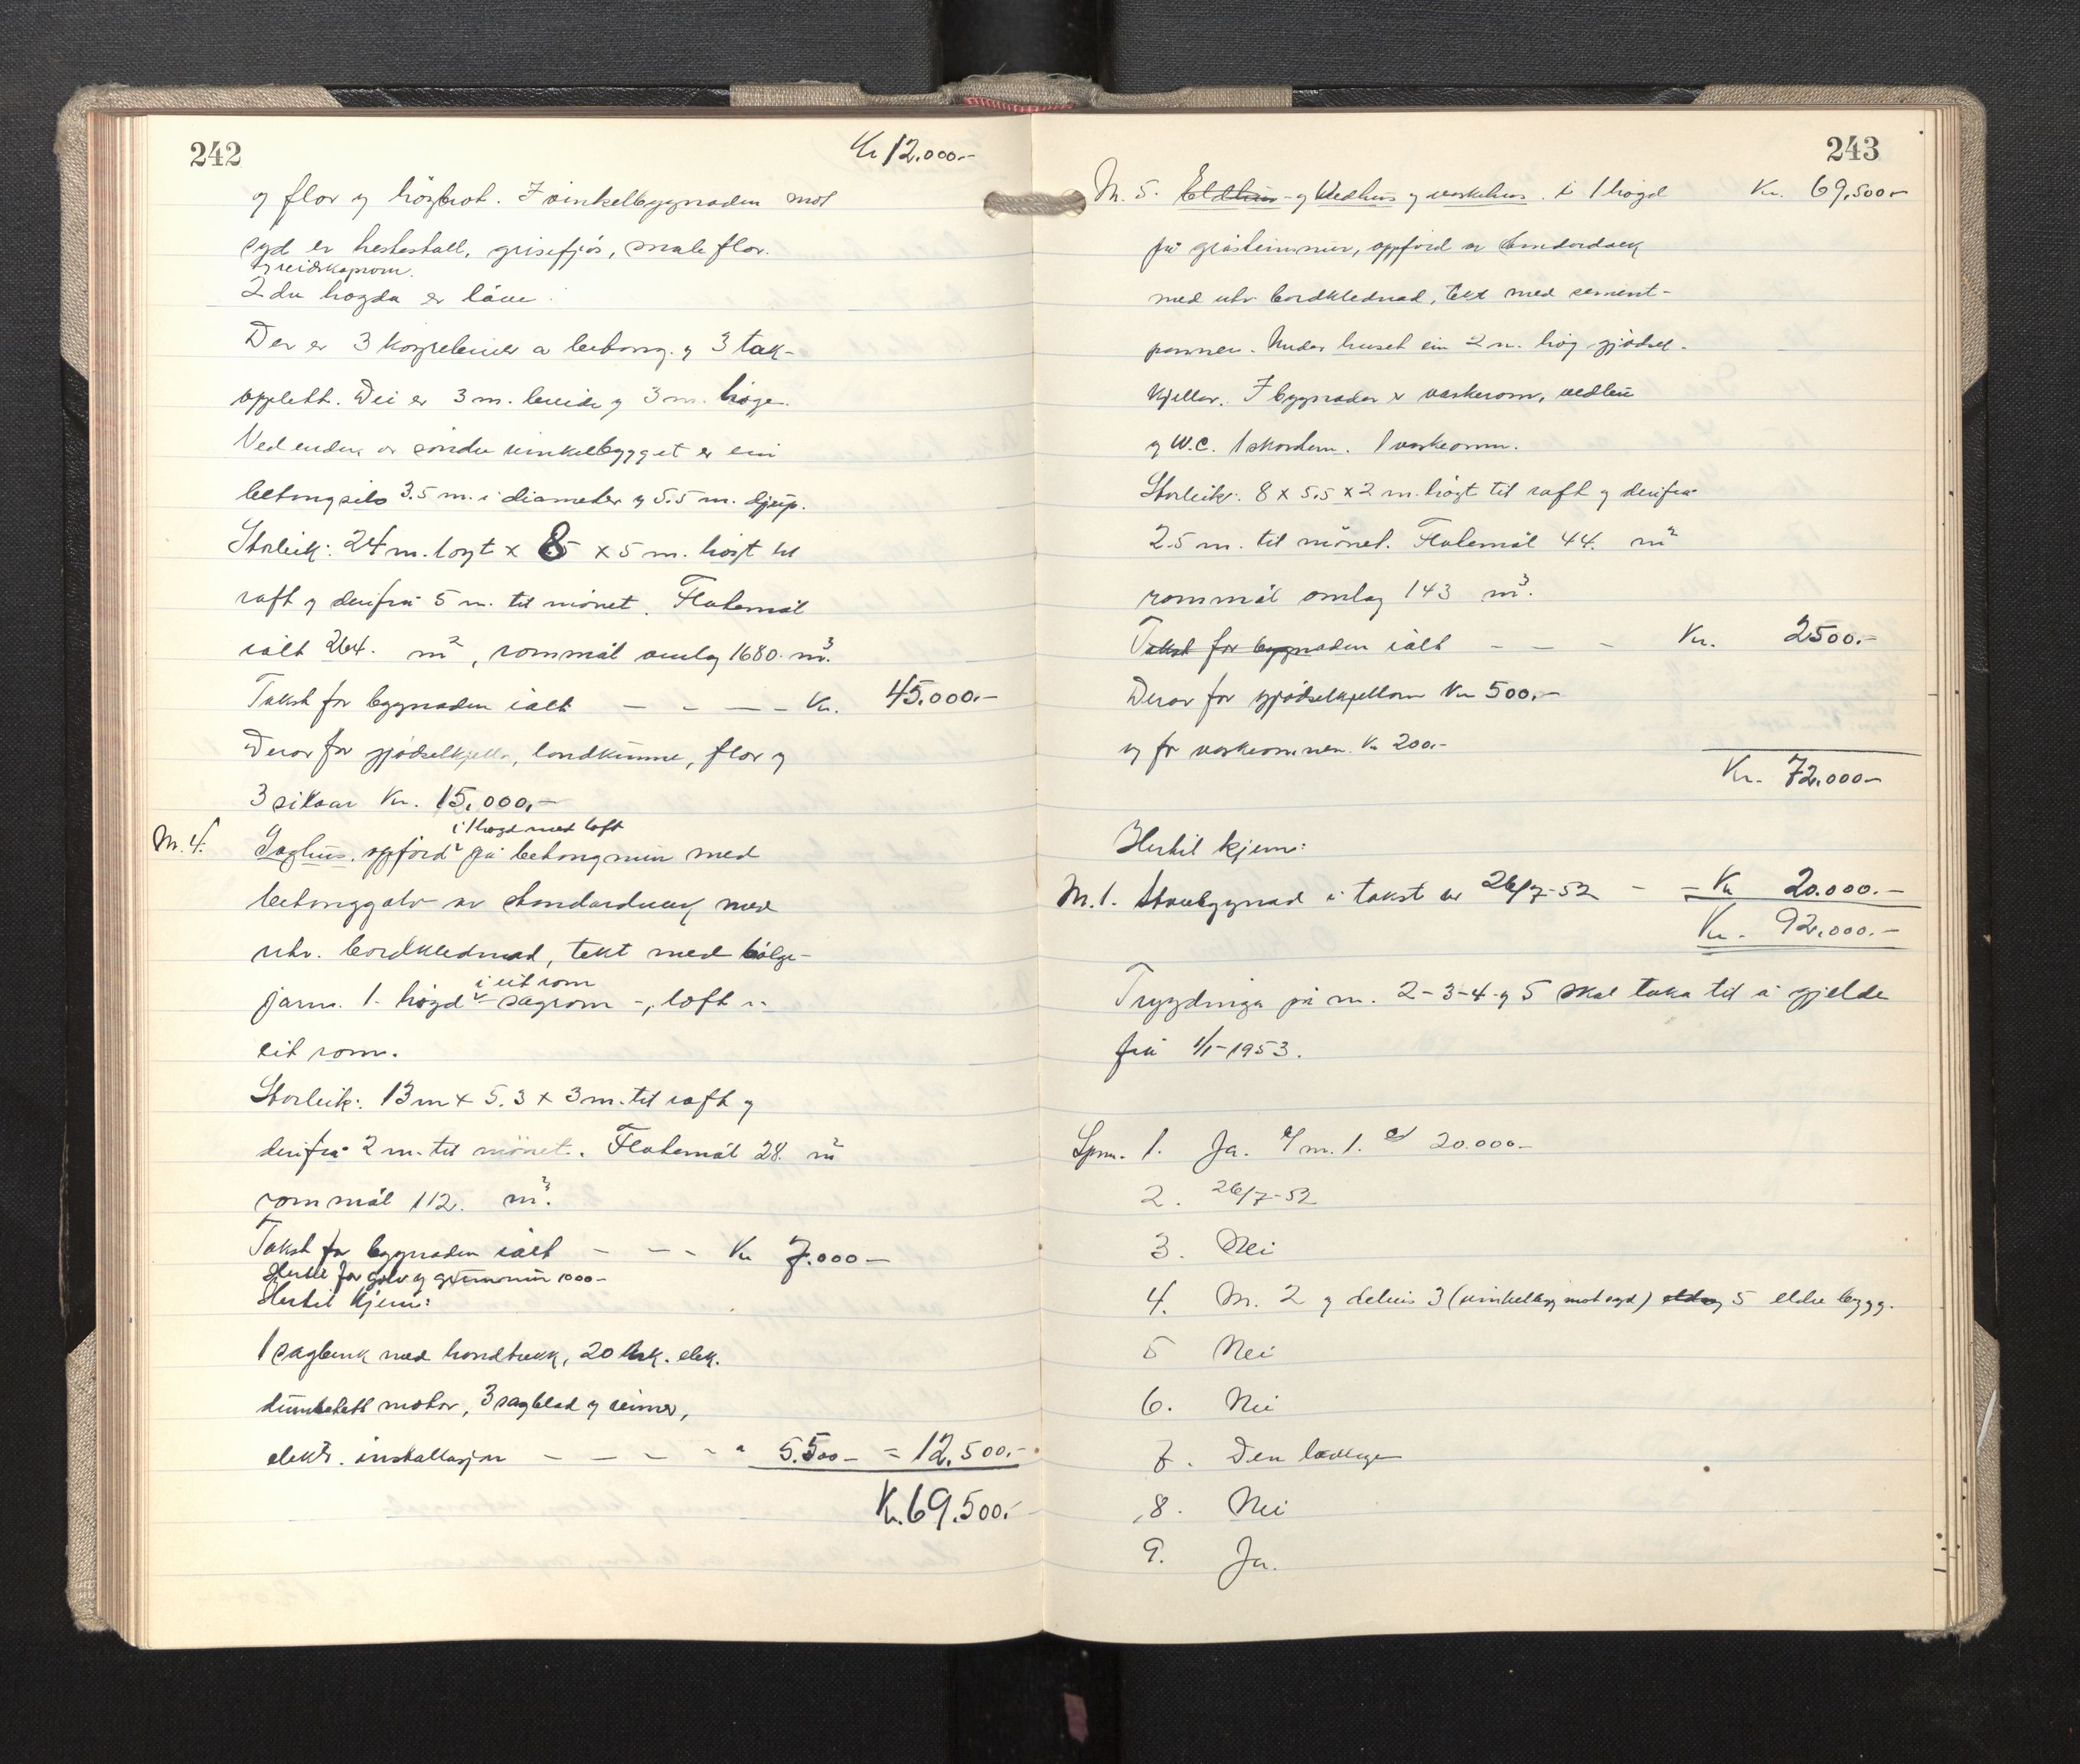 242
Kr 12.000.-
og flor og högbrot. I vinkelbygnaden mot
syd er hestestall, grisefjös, smaleflor.
og reidskaprom.
2dre högda er låve.
Der er 3 köyrebruer av betong. og 3 tak-
opplett. Dei er 3 m. breide og 3 m. höge.
Ved enden av söndre vinkelbygget er ein
betongsilo 3.5 m. i diameter og 5.5 m. djup.
Storleik: 24 m. langt x 8 x 5 m. högt til
raft og derifrå 5 m. til mönet. Flatemål
ialt 264. m², rommål omlag 1680. m³.
Takst for bygnaden ialt — - — - Kr. 45.000.-
Derav for gjödselkjellar, landkumme, flor og
3 siloar Kr. 15.000,-
i 1 högd med loft
M. 4. Saghus. oppförd på betongmur med
betonggolv av standardverk med
utv. bordklednad, tekt med bölge-
i eit rom
jarn. 1. högd - sagrom -, loft i
eit rom.
Storleik: 13 m x 5.3 x 3 m. til raft og
derifrå 2 m. til mönet. Flatemål 28. m²
rommål 112. m³.
Takst for bygnaden ialt - - - Kr 7.000 -
Herav for golv og grunnmur 1000-
Hertil kjem:
1 sagbenk med handtrekk, 20 hk. elek.
motor, 3 sagblad og reimer,
elektr. installasjon - - - - " 5.500 - = 12.500.-
Kr. 69.500.-
243
M. 5. Eldhus - og Vedhus og vaskehus. i 1 högd Kr. 69.500-
på gråsteinsmur, oppförd av standardverk
med utv. bordklednad, tekt med sement-
panner. Under huset ein 2 m. hög gjödsel-
kjellar. I bygnaden er vaskerom, vedbu
og W.C. 1 skorstein. 1 vaskeomn.
Storleik: 8 x 5.5 x 2 m. högt til raft og derifrå
2.5 m. til mönet. Flatemål 44. m²
rommål omlag 143 m³.
Takst for bygnaden ialt - - - Kr. 2500.-
Derav for gjödselkjellaren Kr 500.-
og for vaskeomnen. Kr 200.-
Kr. 72.000-
Hertil kjem:
M. 1. Stovebygnad i takst av 26/7-52 - = Kr 20.000.-
Kr. 92.000.-
Trygdinga på m. 2-3-4-og 5 skal taka til å gjelde
frå 1/1-1953.
Spm. 1. Ja. m. 1. 20.000-
2. 26/7-52
3. Nei
4. M. 2 og delvis 3 (vinkelbyg mot syd) og 5 eldre bygg.
5 Nei
6. Nei
7. Den lovlege
8. Nei
9. Ja.